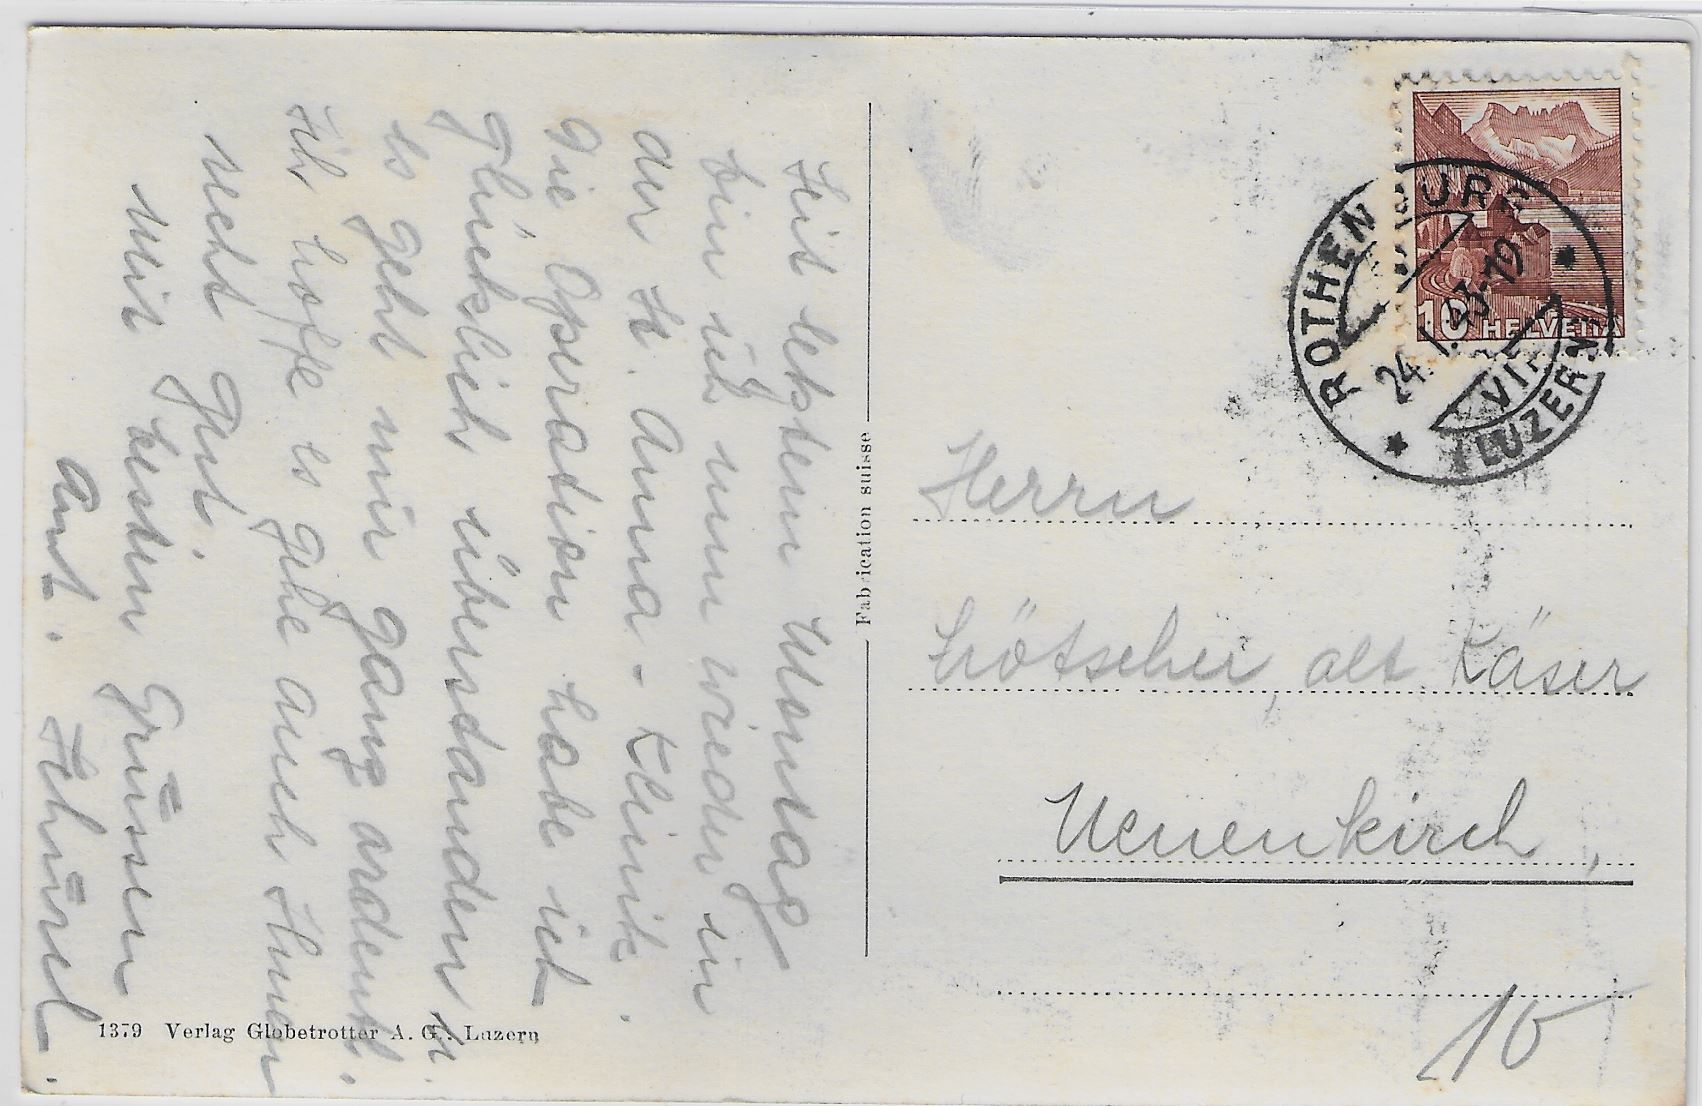 Seit letztem Montag
bin ich nun wieder in
der St. Anna-Klinik.
Die Operation habe ich
glücklich überstanden u.
es geht mir ganz ordentl.
Ich hoffe es gehe auch Ihnen
recht gut.
Mit besten Grüssen
Ant. Schürch.
1379 Verlag Globetrotter A. G., Luzern
Fabrication suisse
HELVETIA
10
ROTHENBURG
24. I. 43-19
LUZERN
Herrn
Lötscher, alt Käser
Neuenkirch,
10